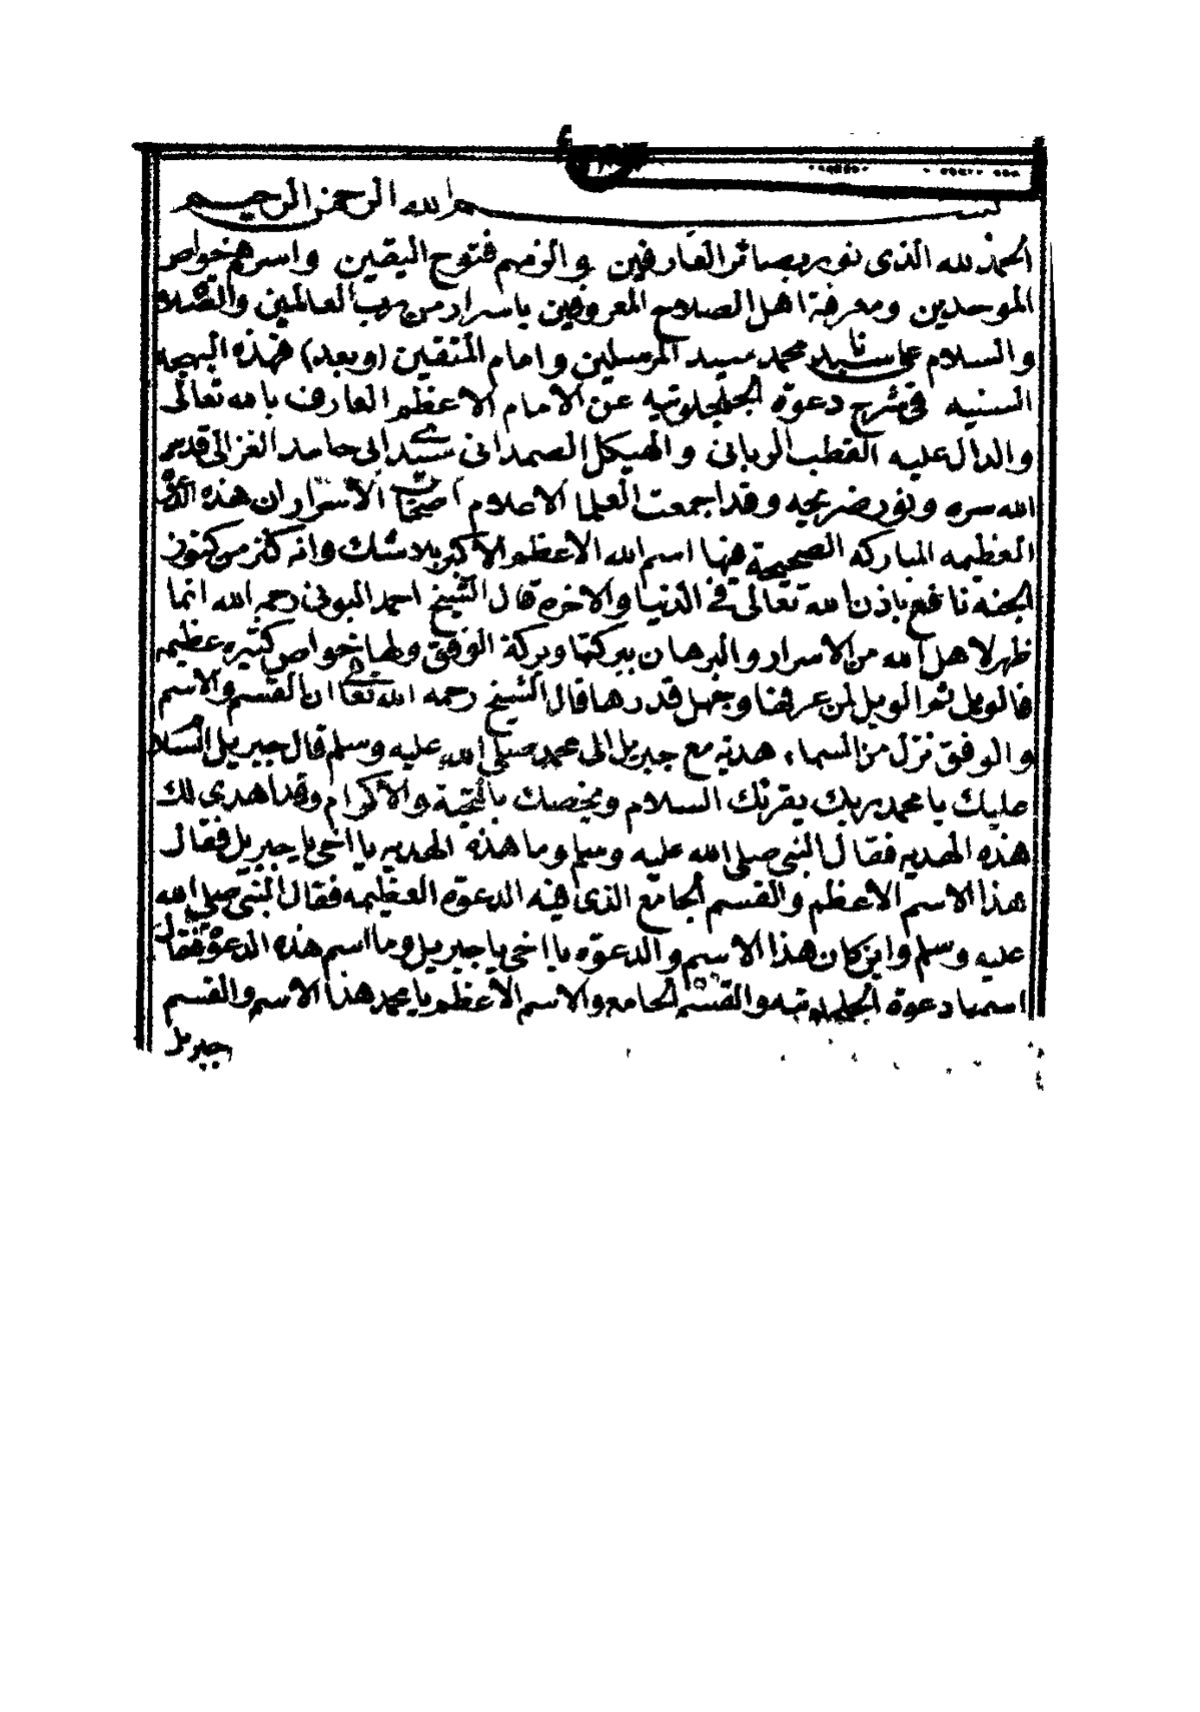 بسم الله الرحمن الرحيم
الحمد لله الذى نور بصائر العارفين والزمهم فتوح اليقين واسرهم خواص
الموحدين ومعرفة اهل الصلاح المعروفين باسرار من رب العالمين والصلاة
والسلام على سيدنا محمد سيد المرسلين وامام المتقين (وبعد) فهذه البهجه
السنيه فى شرح دعوة الجلجلوتيه عن الامام الاعظم العارف بالله تعالى
والدال عليه القطب الربانى والهيكل الصمدانى سيدى ابى حامد الغزالى قدس
الله سره ونور ضريحه وقد اجمعت العلما الاعلام اصحاب الاسرار ان هذه الدعوة
العظيمه المباركه الصحيحة فيها اسم الله الاعظم الاكبر بلا شك وانه كنز من كنوز
الجنه نافع باذن الله تعالى فى الدنيا والاخره قال الشيخ احمد البونى رحمه الله انما
ظهر لاهل الله من الاسرار والبرهان ببركتها وبركة الوفق ولها خواص كثيره عظيمه
فالويل ثم الويل لمن عرفها وجهل قدرها قال الشيخ رحمه الله تعالى ان القسم والاسم
والوفق نزل من السماء هديه مع جبريل الى محمد صلى الله عليه وسلم قال جبريل السلام
عليك يا محمد ربك يقرئك السلام ويخصك بالتحية والاكرام وقد اهدى لك
هذه الهديه فقال النبى صلى الله عليه وسلم وما هذه الهديه يا اخى يا جبريل فقال
هذا الاسم الاعظم والقسم الجامع الذى فيه الدعوه العظيمه فقال النبى صلى الله
عليه وسلم واين كان هذا الاسم والدعوه يا اخى يا جبريل وما اسم هذه الدعوه فقال
اسمها دعوة الجلجلوتيه والقسم الجامع والاسم الاعظم يا محمد هذا الاسم والقسم
جبريل